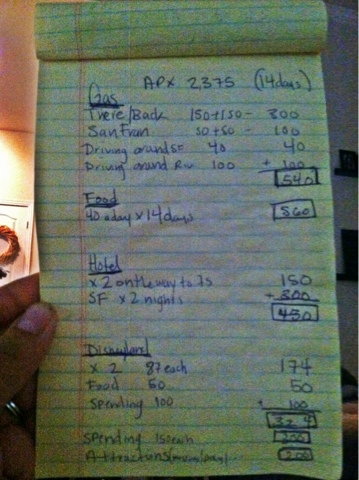 APX 2,375 (14 days)
Gas
There/Back 150+150 - 300
San Fran 50+50 - 100
Driving around SF 40 40
Driving around 100 + 100
540
Food
40 a day x 14 days 560
Hotel
x 2 on the way to 75 150
SF x 2 nights + 300
450
Disneyland
x 2 87 each 174
Food 50 50
Spending 100 + 100
324
Spending 150 each 300
Attractions 200